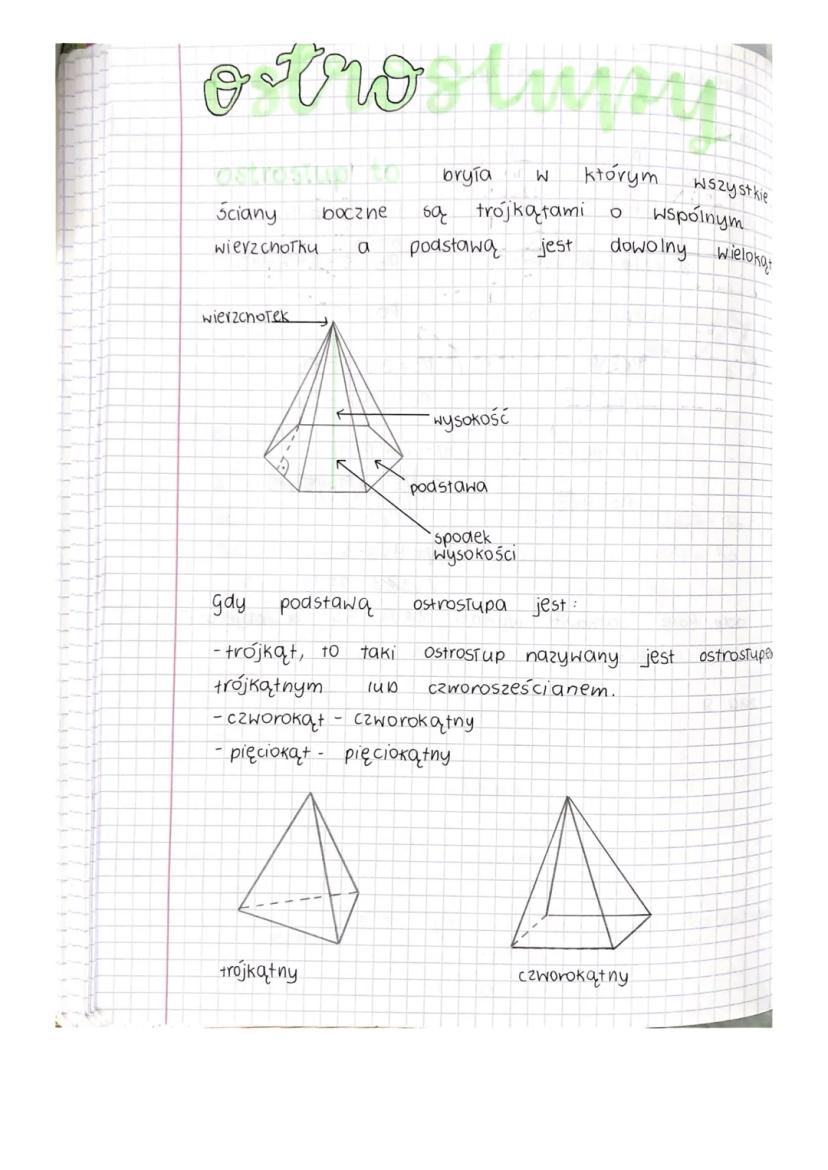 ostrosłupy
ostrosłup to bryła w którym wszystkie
ściany boczne są trójkątami o wspólnym
wierzchołku a podstawą jest dowolny wielokąt
wierzchołek
wysokość
podstawa
spodek
wysokości
Gdy podstawą ostrosłupa jest:
- trójkąt, to taki ostrosłup nazywany jest ostrosłupe
trójkątnym lub czworosześcianem.
- czworokąt - czworokątny
- pięciokąt - pięciokątny
trójkątny
czworokątny